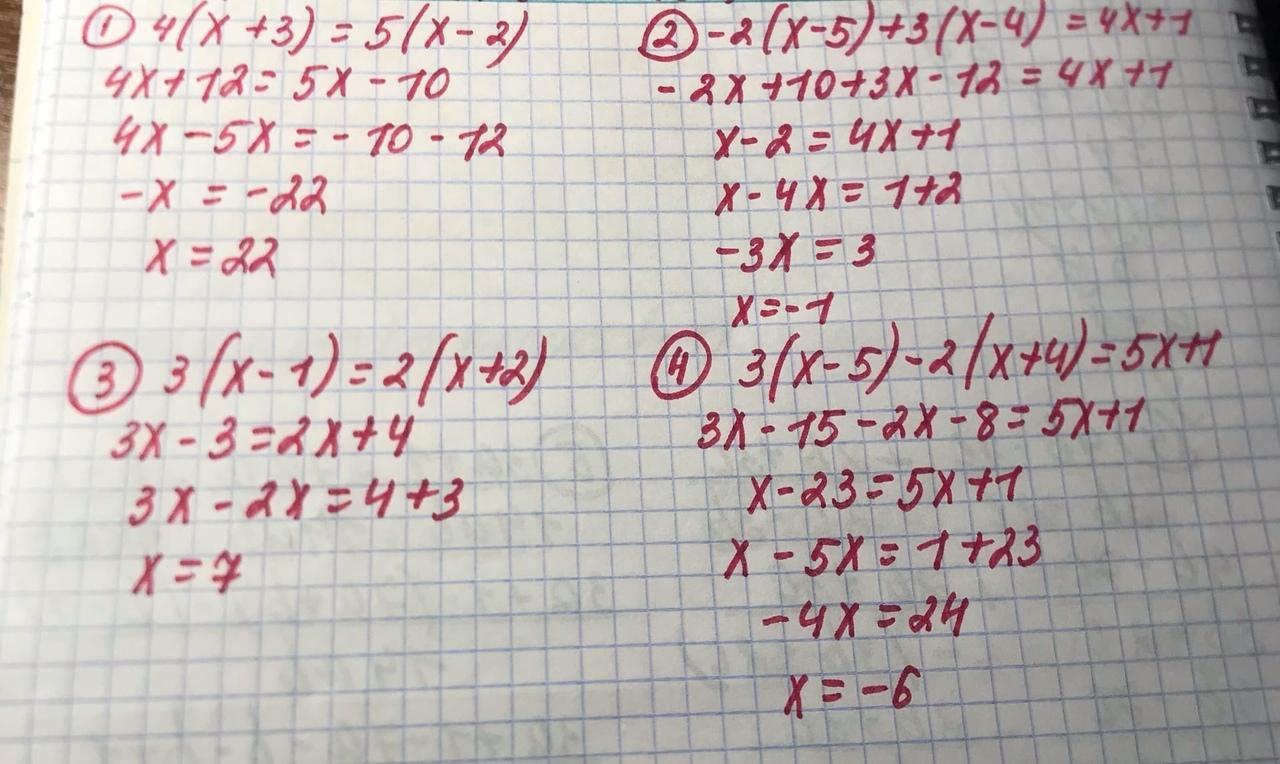 ① 4(x+3)=5(x-2)
4x+12=5x-10
4x-5x=-10-12
-x=-22
x=22
② -2(x-5)+3(x-4)=4x+1
-2x+10+3x-12=4x+1
x-2=4x+1
x-4x=1+2
-3x=3
x=-1
③ 3(x-1)=2(x+2)
3x-3=2x+4
3x-2x=4+3
x=7
④ 3(x-5)-2(x+4)=5x+1
3x-15-2x-8=5x+1
x-23=5x+1
x-5x=1+23
-4x=24
x=-6